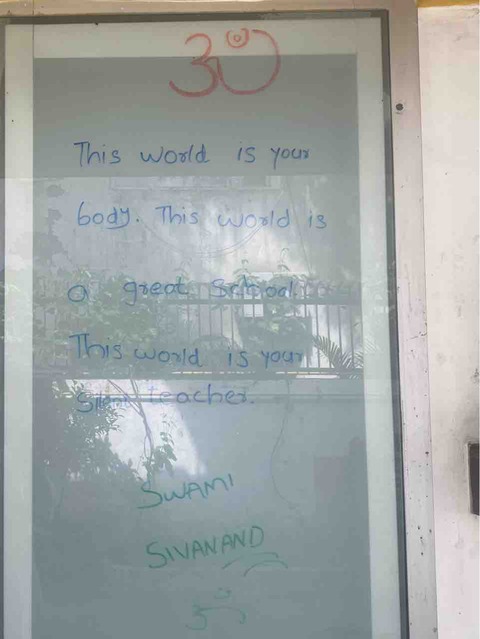 ॐ
This world is your
body. This world is
a great School.
This world is your
Silent teacher.
SWAMI
SIVANAND
ॐ